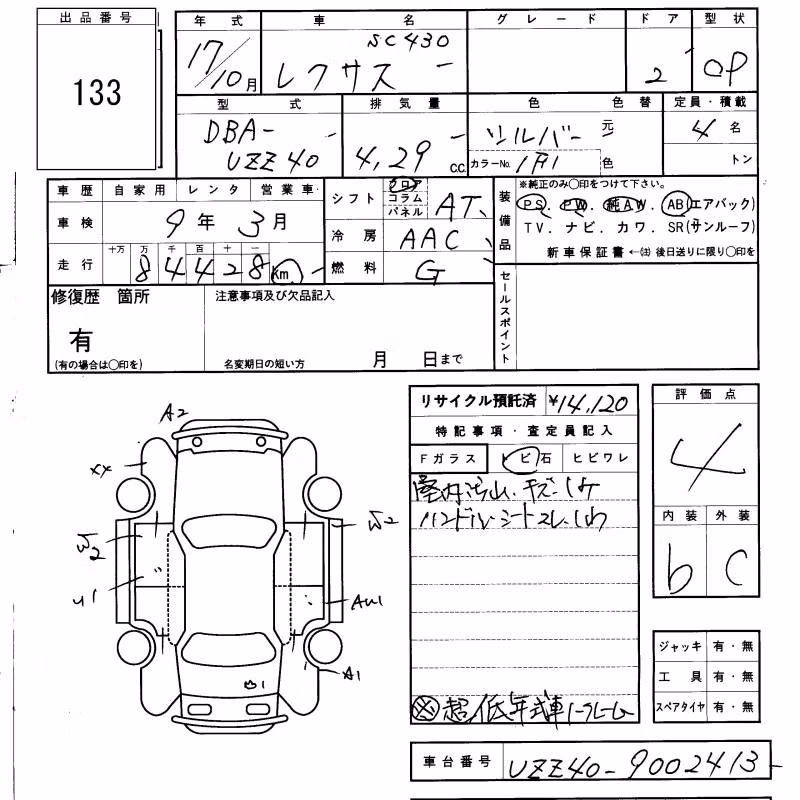 出品番号
133
年式 車名 グレード ドア 型状
17/10月 SC430 レクサス 2 OP
型式 排気量 色 色替 定員・積載
DBA-UZZ40 4,29 C.C. シルバー 元 4名
カラーNo. 1F1 色 トン
車歴 自家用 レンタ 営業車
車検 9年3月
十万 万 千 百 十 一
走行 84428 Km
シフト フロア コラム パネル AT
冷房 AAC
燃料 G
装備品
※純正のみ○印をつけて下さい。
PS. PW. 純AW. AB(エアバック)
TV. ナビ. カワ. SR(サンルーフ)
新車保証書 ←㊟ 後日送りに限り○印を
修復歴 箇所
有
(有の場合は○印を)
注意事項及び欠品記入
名変期日の短い方 月 日まで
セールスポイント
リサイクル預託済 ¥14,120
特記事項・査定員記入
Fガラス トビ石 ヒビワレ
室内汚レ.キズ.シケ
ハンドル.シートスレ.シワ
※超低年式車ノークレーム
評価点
4
内装 外装
b C
ジャッキ 有・無
工具 有・無
スペアタイヤ 有・無
A2
XX
W2
W2
U1
AW1
A1
1
車台番号 UZZ40-9002413